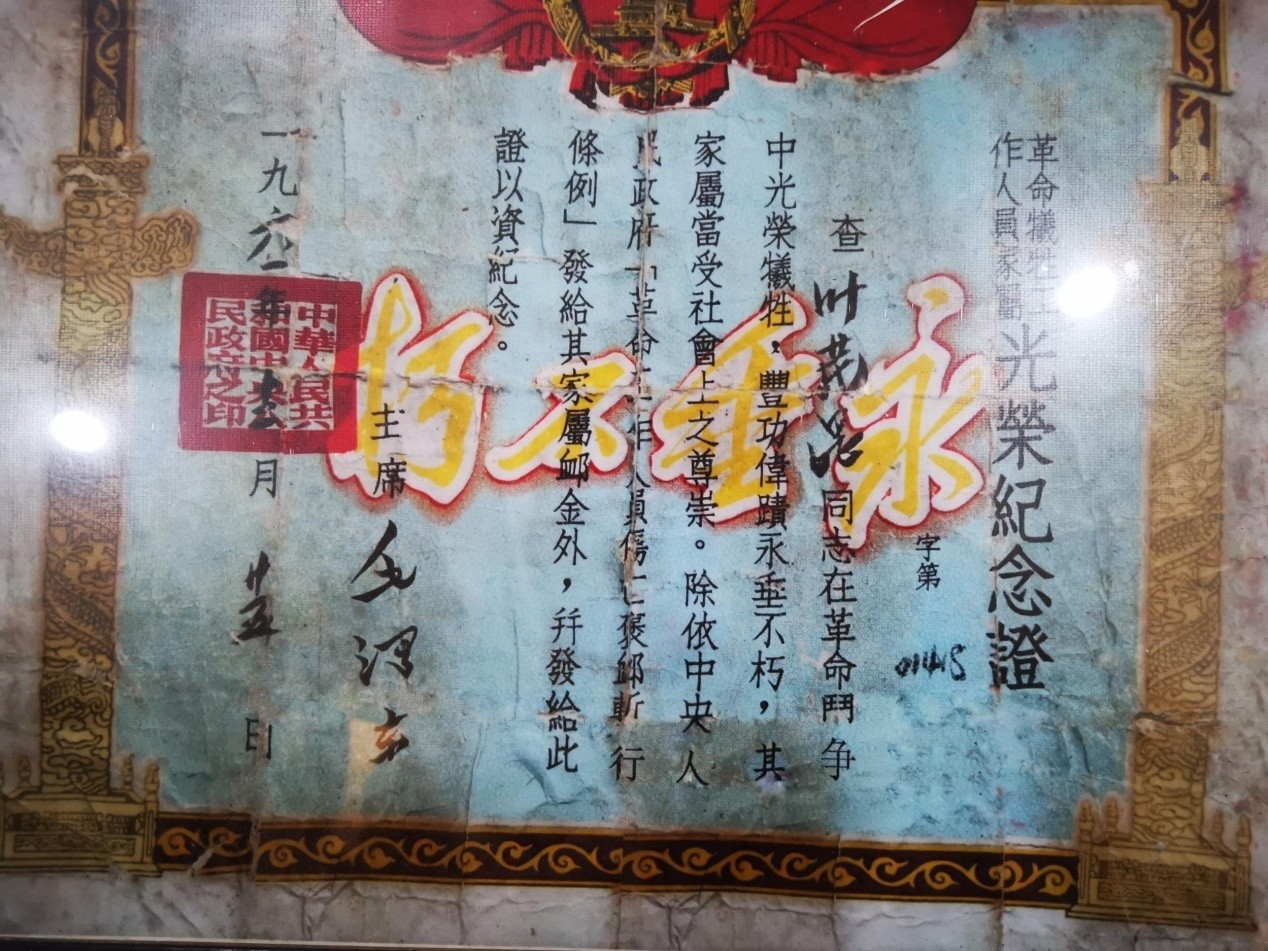 革命犧牲工
作人員家屬
光榮紀念證
字第
查叶茂洛同志在革命鬥争
中光榮犧牲，豐功偉蹟永垂不朽，其
家屬當受社會上之尊崇。除依中央人
民政府「革命工作人員傷亡褒卹暫行
條例」發給其家屬卹金外，幷發給此
證以資紀念。
永垂不朽
主席毛澤东
一九 年 月廿五日
中華人民共
和國中央人
民政府之印